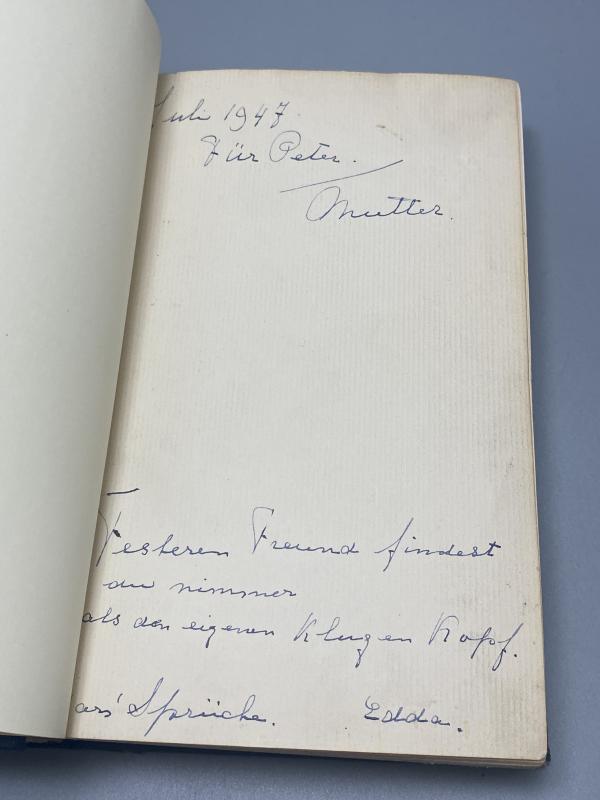 Juli 1947
Für Peter.
Mutter.
Festeren Freund findest
du nimmer
als den eigenen Klugen Kopf.
Sprüche. Edda.